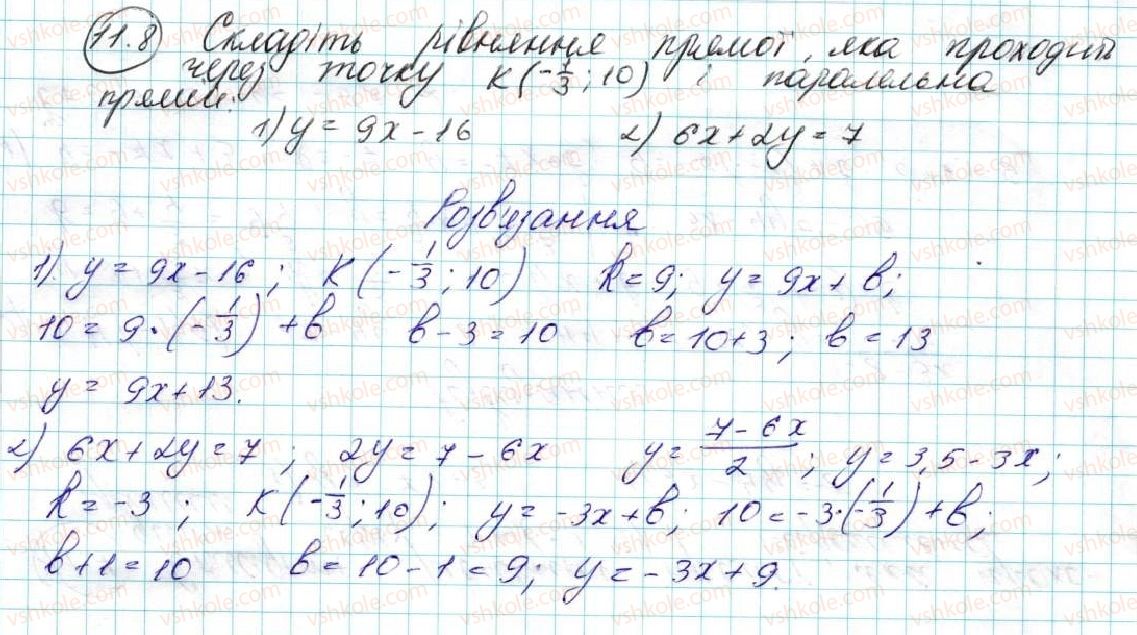 11.8 Складіть рівняння прямої, яка проходить
через точку K(-1/3; 10) і паралельна
прямій:
1) y = 9x - 16 2) 6x + 2y = 7
Розв'язання
1). y = 9x - 16; K(-1/3; 10) k = 9; y = 9x + b;
10 = 9·(-1/3) + b b - 3 = 10 b = 10 + 3; b = 13
y = 9x + 13.
2) 6x + 2y = 7; 2y = 7 - 6x y = (7 - 6x)/2; y = 3,5 - 3x;
k = -3; K(-1/3; 10); y = -3x + b; 10 = -3·(-1/3) + b;
b + 1 = 10 b = 10 - 1 = 9; y = -3x + 9.